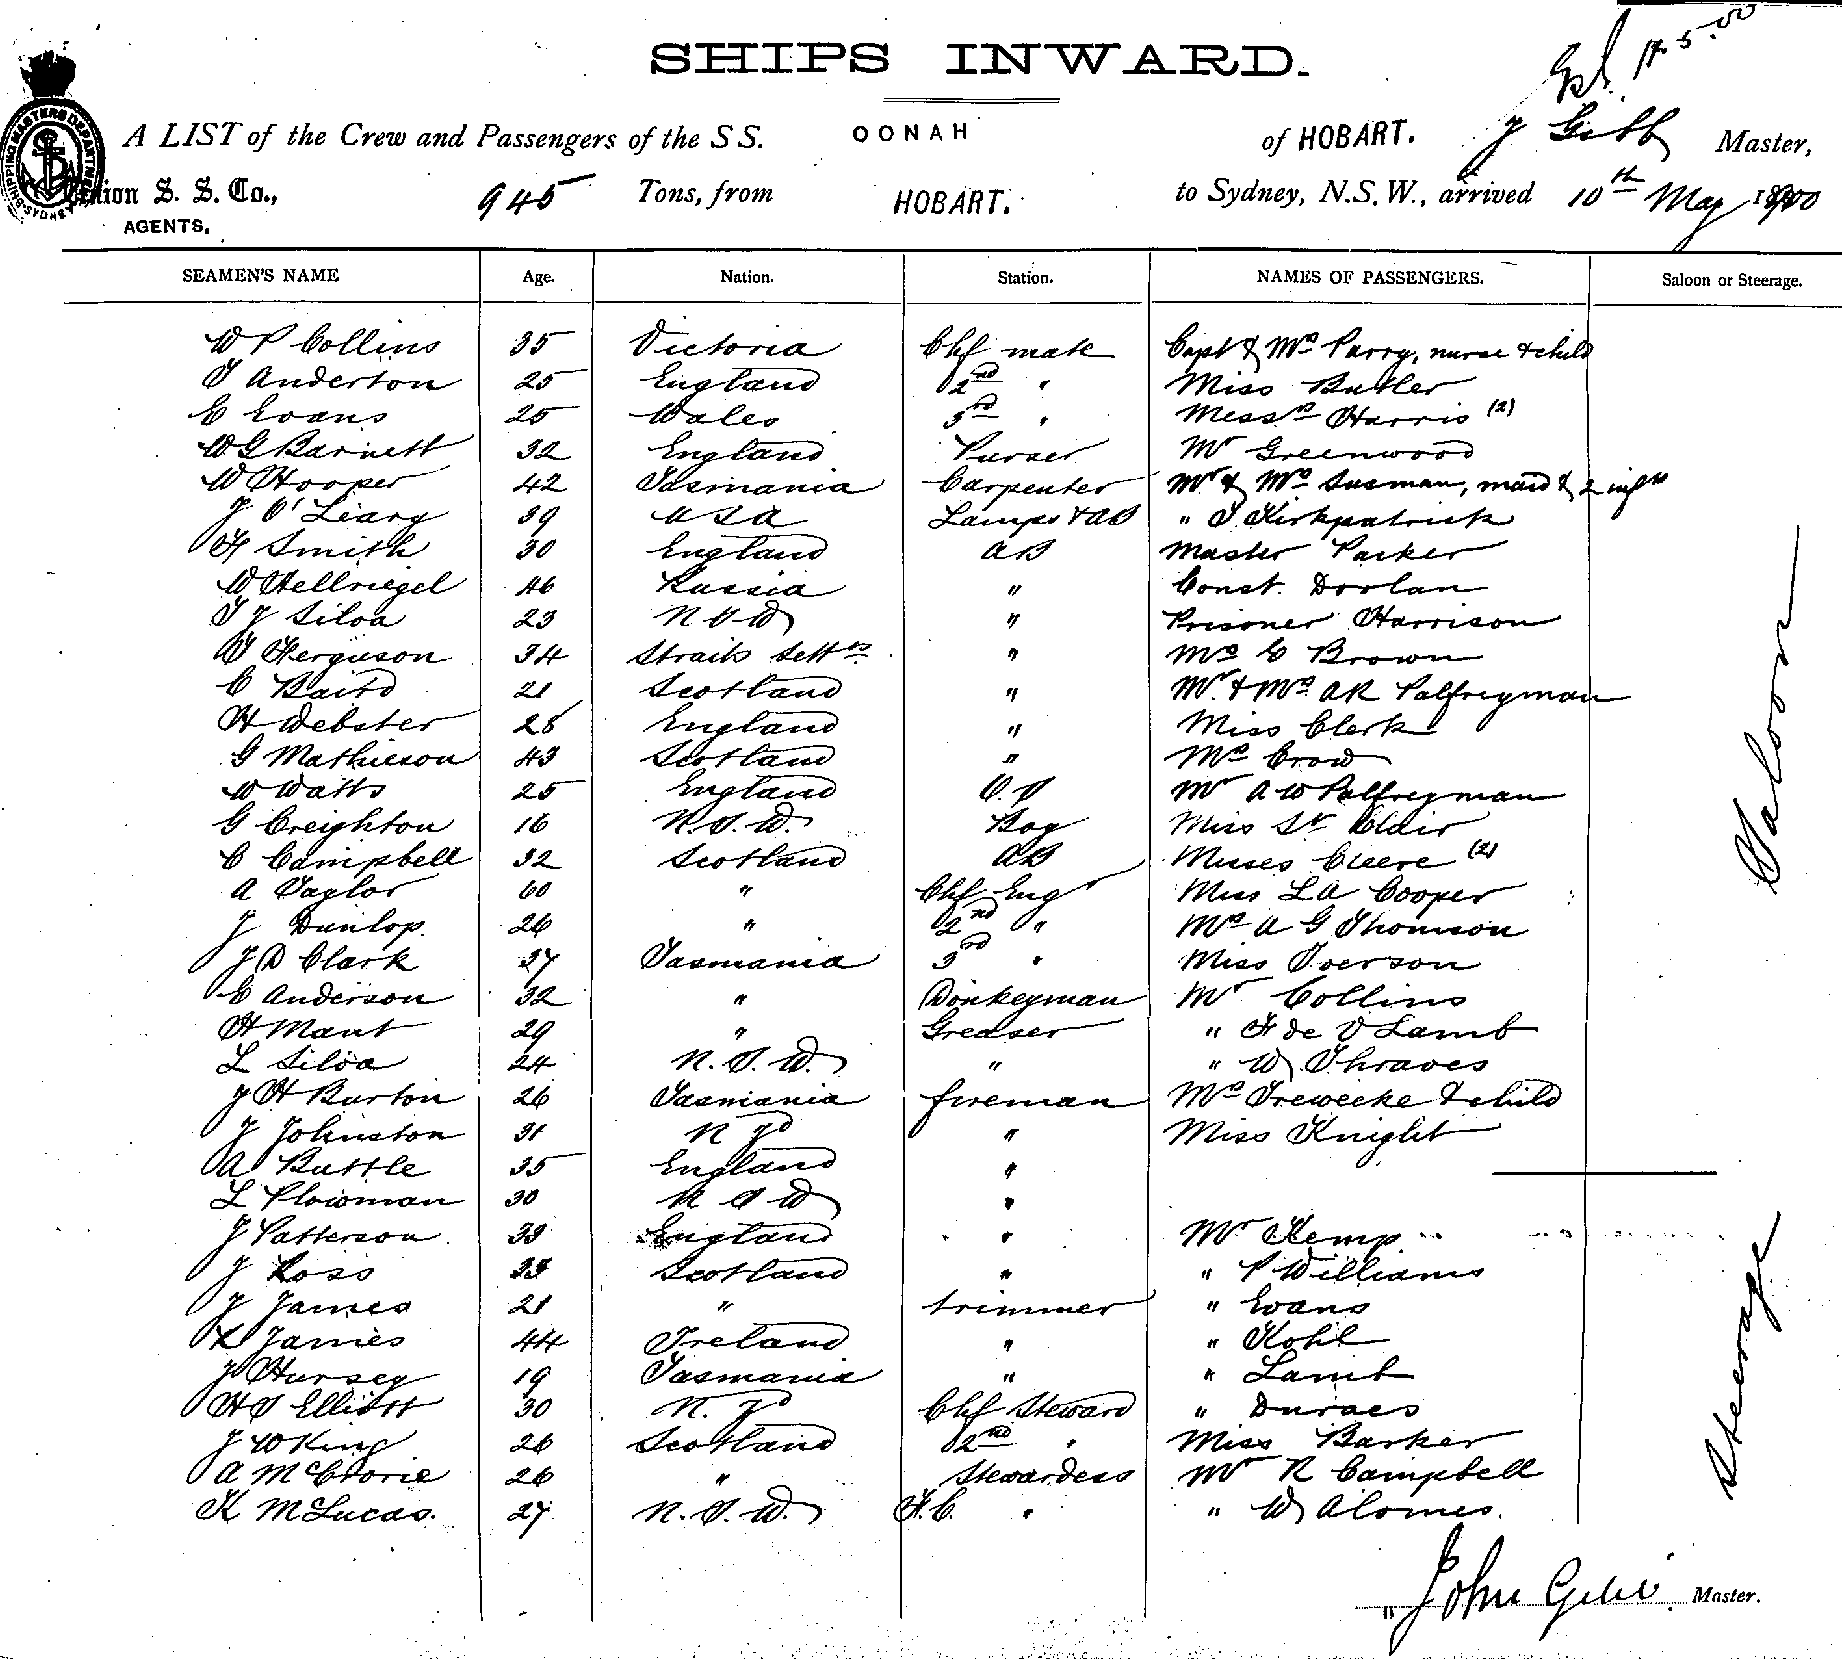 SHIPS INWARD.
17.5.00
A LIST of the Crew and Passengers of the SS. OONAH of HOBART. J Gibb Master,
Union S. S. Co., 945 Tons, from HOBART. to Sydney, N.S.W., arrived 10th May 1900
AGENTS.
SHIPPING MASTERS DEPARTMENT SYDNEY
SEAMEN'S NAME Age. Nation. Station. NAMES OF PASSENGERS. Saloon or Steerage.
W P Collins 35 Victoria Chf mate Capt & Mrs Parry, nurse & child
T Anderton 25 England 2nd " Miss Butler
E Evans 25 Wales 3rd " Messrs Harris (2)
W G Barnett 32 England Purser Mr Greenwood
W Hooper 42 Tasmania Carpenter Mr & Mrs Susman, maid & 2 infts
J O'Leary 39 USA Lamps & AB " T Kirkpatrick
H Smith 30 England AB Master Parker
W Hellriegel 46 Russia " Const. Dorlan
T J Silva 23 NSW " Prisoner Harrison
Ferguson 34 Straits Settts " Mrs C Brown
C Baird 21 Scotland " Mr & Mrs AR Palfreyman
H Webster 28 England " Miss Clerk
G Mathieson 43 Scotland " Mrs Crow
W Watts 25 England O.S Mr A W Palfreyman
G Creighton 16 N.S.W. Boy Miss St Clair
C Campbell 32 Scotland AB Misses Cleere (2)
A Taylor 60 " Chf Engr Miss L A Cooper
J Dunlop. 26 " 2nd " Mrs A G Thomson
J D Clark 37 Tasmania 3rd " Miss Iverson
C Anderson 32 " Donkeyman Mr Collins
H Mant 29 " Greaser " F de V Lamb
L Silva 24 N.S.W. " " W Thraves
J H Burton 26 Tasmania fireman Mrs Trewecke & child
J Johnston 31 N Zd " Miss Knight
A Buttle 35 England "
L Plowman 30 NSW "
J Patterson 33 England " Mr Kemp
J Ross Scotland " " P Williams
J James 21 " trimmer " Evans
James 44 Ireland " " Kohl
J Hursey 19 Tasmania " " Lamb
H S Elliott 30 N. Zd Chf Steward " Duraes
J W King 26 Scotland 2nd " Miss Barker
A McCrorie 26 " Stewardess Mr R Campbell
K McLucas. 27 N.S.W. F.C. " " W Alomes.
Saloon
Steerage
John Gibb Master.